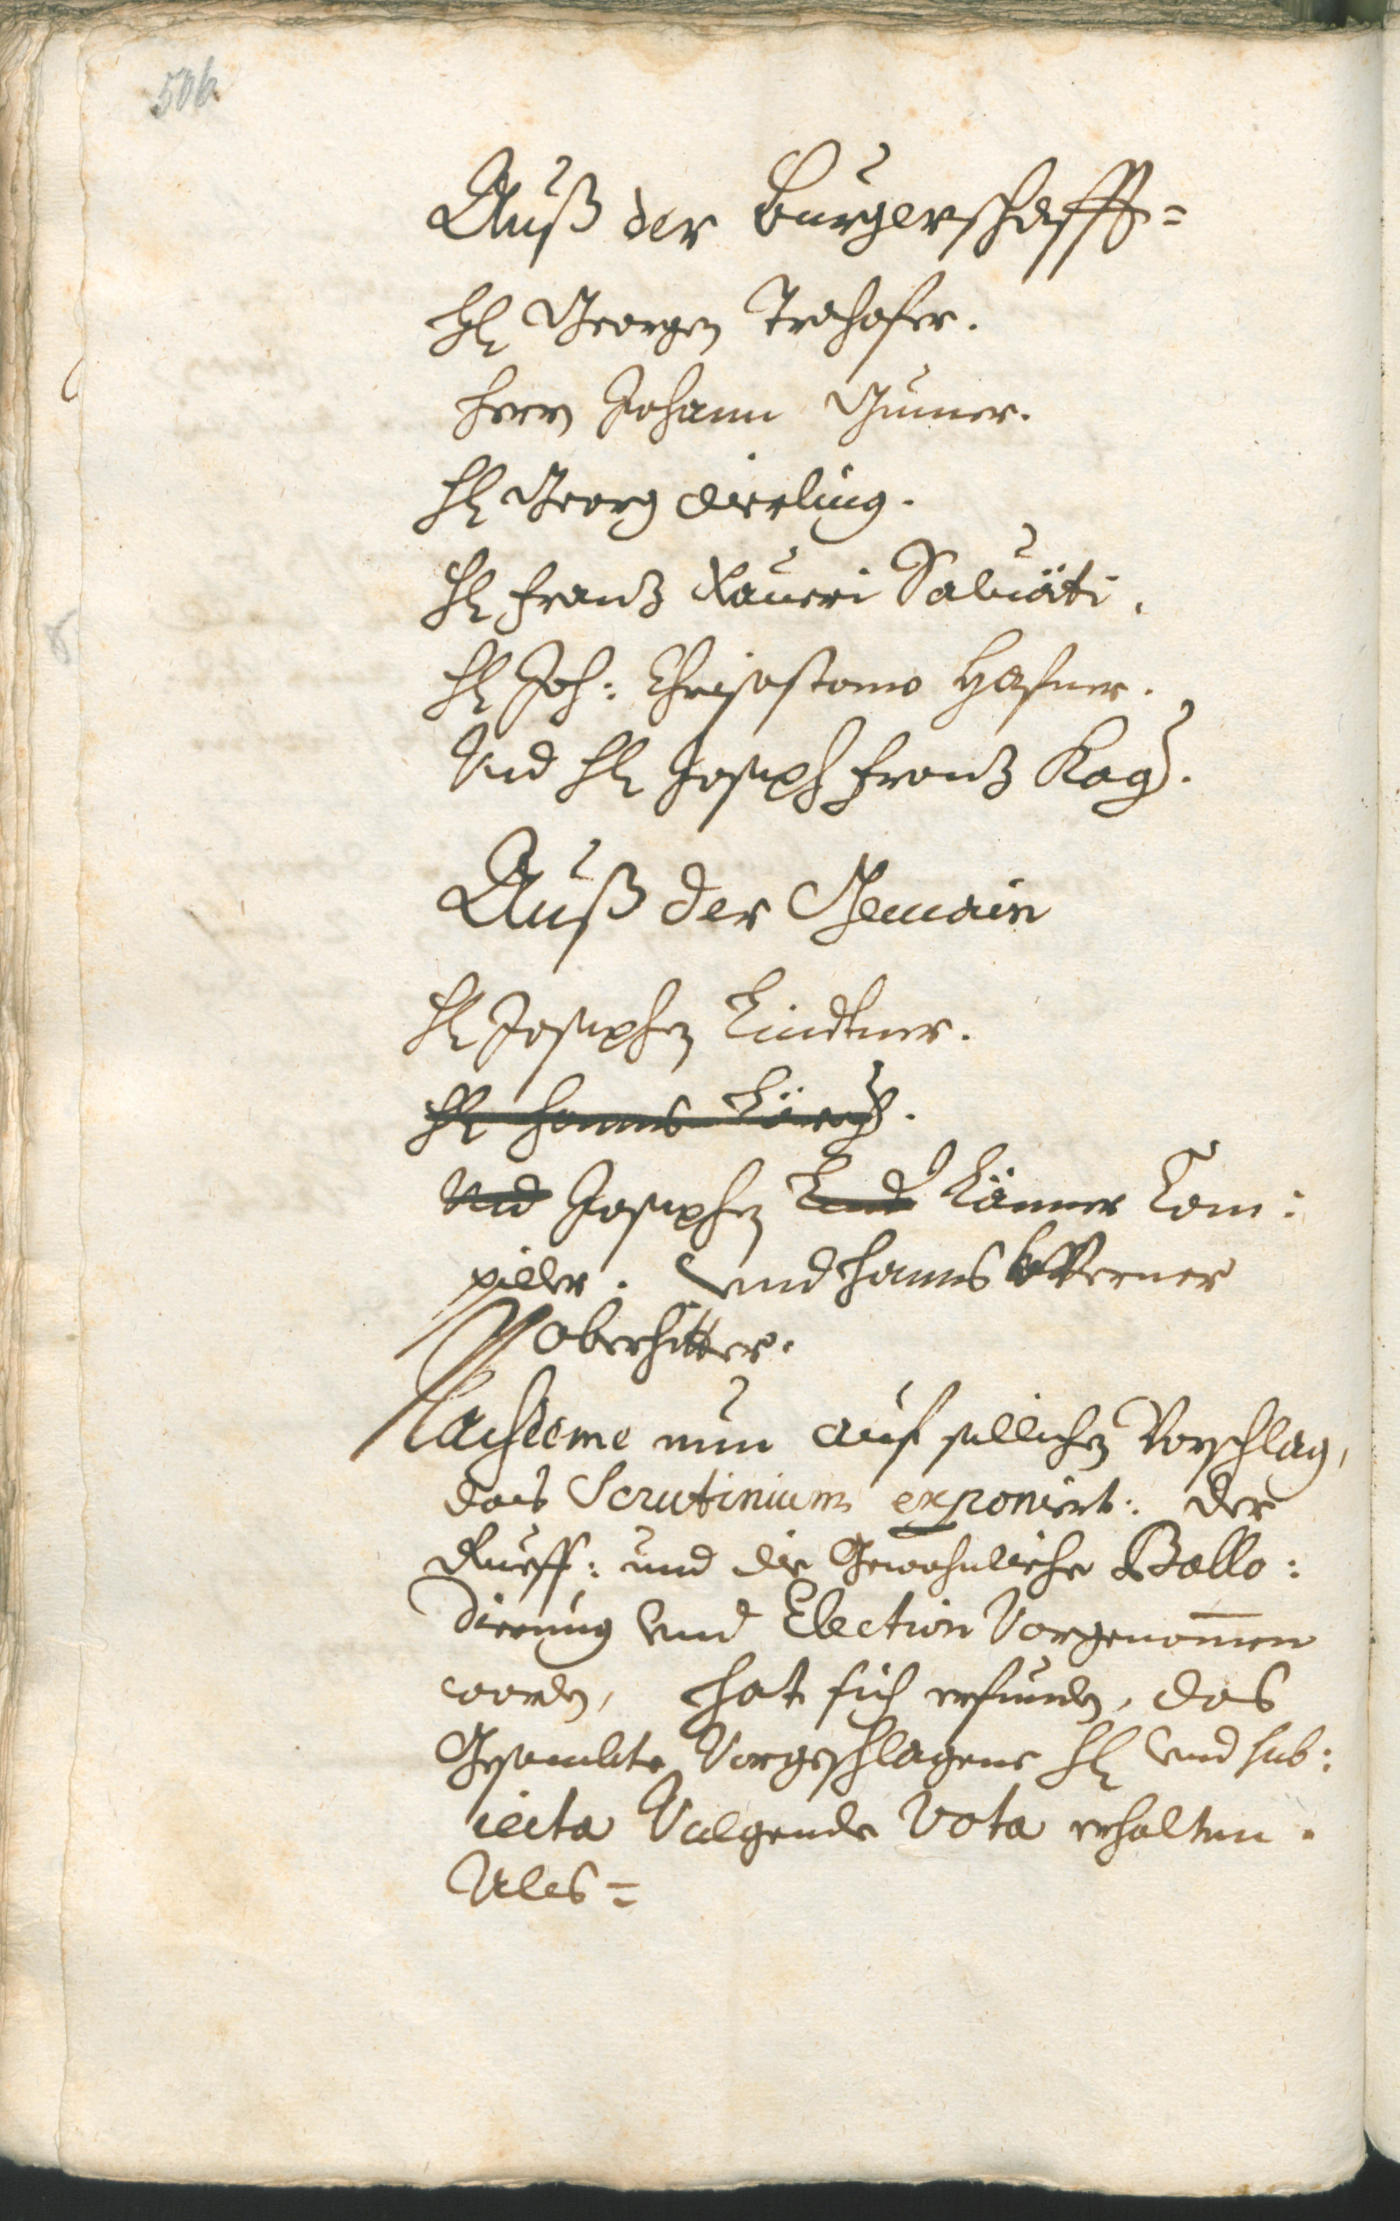 506
Auß der Burgerschafft=
Hl Georgen Trehofer.
Herrn Johann Gumer.
Hl Georg dierling.
Hl Franz Xaueri Saluäti.
Hl Joh: Chrisostomo Hafner.
Vnd Hl Joseph Franz Kag.
Auß der Gemain
Hl Josephen Lindtner.
Hl Hanns
Vnd Josephen Lind Länner Com:
piller. vnd Hanns Werner
oberhitter.
Nachdeme nun auf sellichen Vorschlag,
das Scrutinium exponiert: der
Rueff: und die Gewohnliche Ballo:
dierung vnd Election Vorgenomen
worden, hat sich erfunden, das
Gesambte Vorgeschlagene Hl vnd sub:
iecta Volgende Vota erhalten.
Ales=